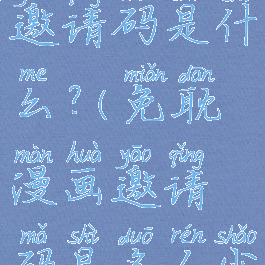 邀请码是什
me
么?(
miǎn dān
免耽
màn huà yāo qǐng
漫画邀请
mǎ shì duō rén shǎo
码是多人少